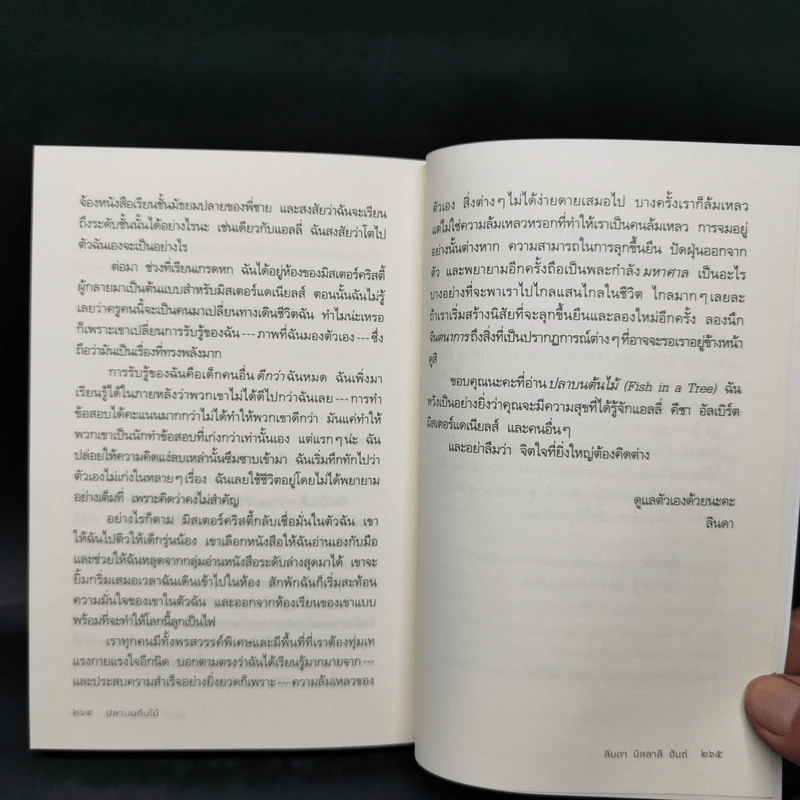 จ้องหนังสือเรียนชั้นมัธยมปลายของพี่ชาย และสงสัยว่าฉันจะเรียน
ถึงระดับชั้นนั้นได้อย่างไรนะ เช่นเดียวกับแอลลี่ ฉันสงสัยว่าโตไป
ตัวฉันเองจะเป็นอย่างไร
ต่อมา ช่วงที่เรียนเกรดหก ฉันได้อยู่ห้องของมิสเตอร์คริสตี้
ผู้กลายมาเป็นต้นแบบสำหรับมิสเตอร์แดเนียลส์ ตอนนั้นฉันไม่รู้
เลยว่าครูคนนี้จะเป็นคนมาเปลี่ยนทางเดินชีวิตฉัน ทำไมน่ะเหรอ
ก็เพราะเขาเปลี่ยนการรับรู้ของฉัน --- ภาพที่ฉันมองตัวเอง --- ซึ่ง
ถือว่ามันเป็นเรื่องที่ทรงพลังมาก
การรับรู้ของฉันคือเด็กคนอื่น ดีกว่า ฉันหมด ฉันเพิ่งมา
เรียนรู้ได้ในภายหลังว่าพวกเขาไม่ได้ดีไปกว่าฉันเลย --- การทำ
ข้อสอบได้คะแนนมากกว่าไม่ได้ทำให้พวกเขาดีกว่า มันแค่ทำให้
พวกเขาเป็นนักทำข้อสอบที่เก่งกว่าเท่านั้นเอง แต่แรกๆ น่ะ ฉัน
ปล่อยให้ความคิดแง่ลบเหล่านั้นซึมซาบเข้ามา ฉันเริ่มทึกทักไปว่า
ตัวเองไม่เก่งในหลายๆ เรื่อง ฉันเลยใช้ชีวิตอยู่โดยไม่ได้พยายาม
อย่างเต็มที่ เพราะคิดว่าคงไม่สำคัญ
อย่างไรก็ตาม มิสเตอร์คริสตี้กลับเชื่อมั่นในตัวฉัน เขา
ให้ฉันไปติวให้เด็กรุ่นน้อง เขาเลือกหนังสือให้ฉันอ่านเองกับมือ
และช่วยให้ฉันหลุดจากกลุ่มอ่านหนังสือระดับล่างสุดมาได้ เขาจะ
ยิ้มกริ่มเสมอเวลาฉันเดินเข้าไปในห้อง สักพักฉันก็เริ่มสะท้อน
ความมั่นใจของเขาในตัวฉัน และออกจากห้องเรียนของเขาแบบ
พร้อมที่จะทำให้โลกนี้ลุกเป็นไฟ
เราทุกคนมีทั้งพรสวรรค์พิเศษและมีพื้นที่ที่เราต้องทุ่มเท
แรงกายแรงใจอีกนิด บอกตามตรงว่าฉันได้เรียนรู้มากมายจาก ---
และประสบความสำเร็จอย่างยิ่งยวดก็เพราะ --- ความล้มเหลวของ
๒๖๔ ปลาบนต้นไม้
ตัวเอง สิ่งต่างๆ ไม่ได้ง่ายดายเสมอไป บางครั้งเราก็ล้มเหลว
แต่ไม่ใช่ความล้มเหลวหรอกที่ทำให้เราเป็นคนล้มเหลว การจมอยู่
อย่างนั้นต่างหาก ความสามารถในการลุกขึ้นยืน ปัดฝุ่นออกจาก
ตัว และพยายามอีกครั้งถือเป็นพละกำลัง มหาศาล เป็นอะไร
บางอย่างที่จะพาเราไปไกลแสนไกลในชีวิต ไกลมากๆ เลยละ
ถ้าเราเริ่มสร้างนิสัยที่จะลุกขึ้นยืนและลองใหม่อีกครั้ง ลองนึก
จินตนาการ ถึงสิ่งที่เป็นปรากฏการณ์ต่างๆ ที่อาจจะรอเราอยู่ข้างหน้า
ดูสิ
ขอบคุณนะคะที่อ่าน ปลาบนต้นไม้ (Fish in a Tree) ฉัน
หวังเป็นอย่างยิ่งว่าคุณจะมีความสุขที่ได้รู้จักแอลลี่ คีชา อัลเบิร์ต
มิสเตอร์แดเนียลส์ และคนอื่นๆ
และอย่าลืมว่า จิตใจที่ยิ่งใหญ่ต้องคิดต่าง
ดูแลตัวเองด้วยนะคะ
ลินดา
ลินดา มัลลาลี ฮันต์ ๒๖๕